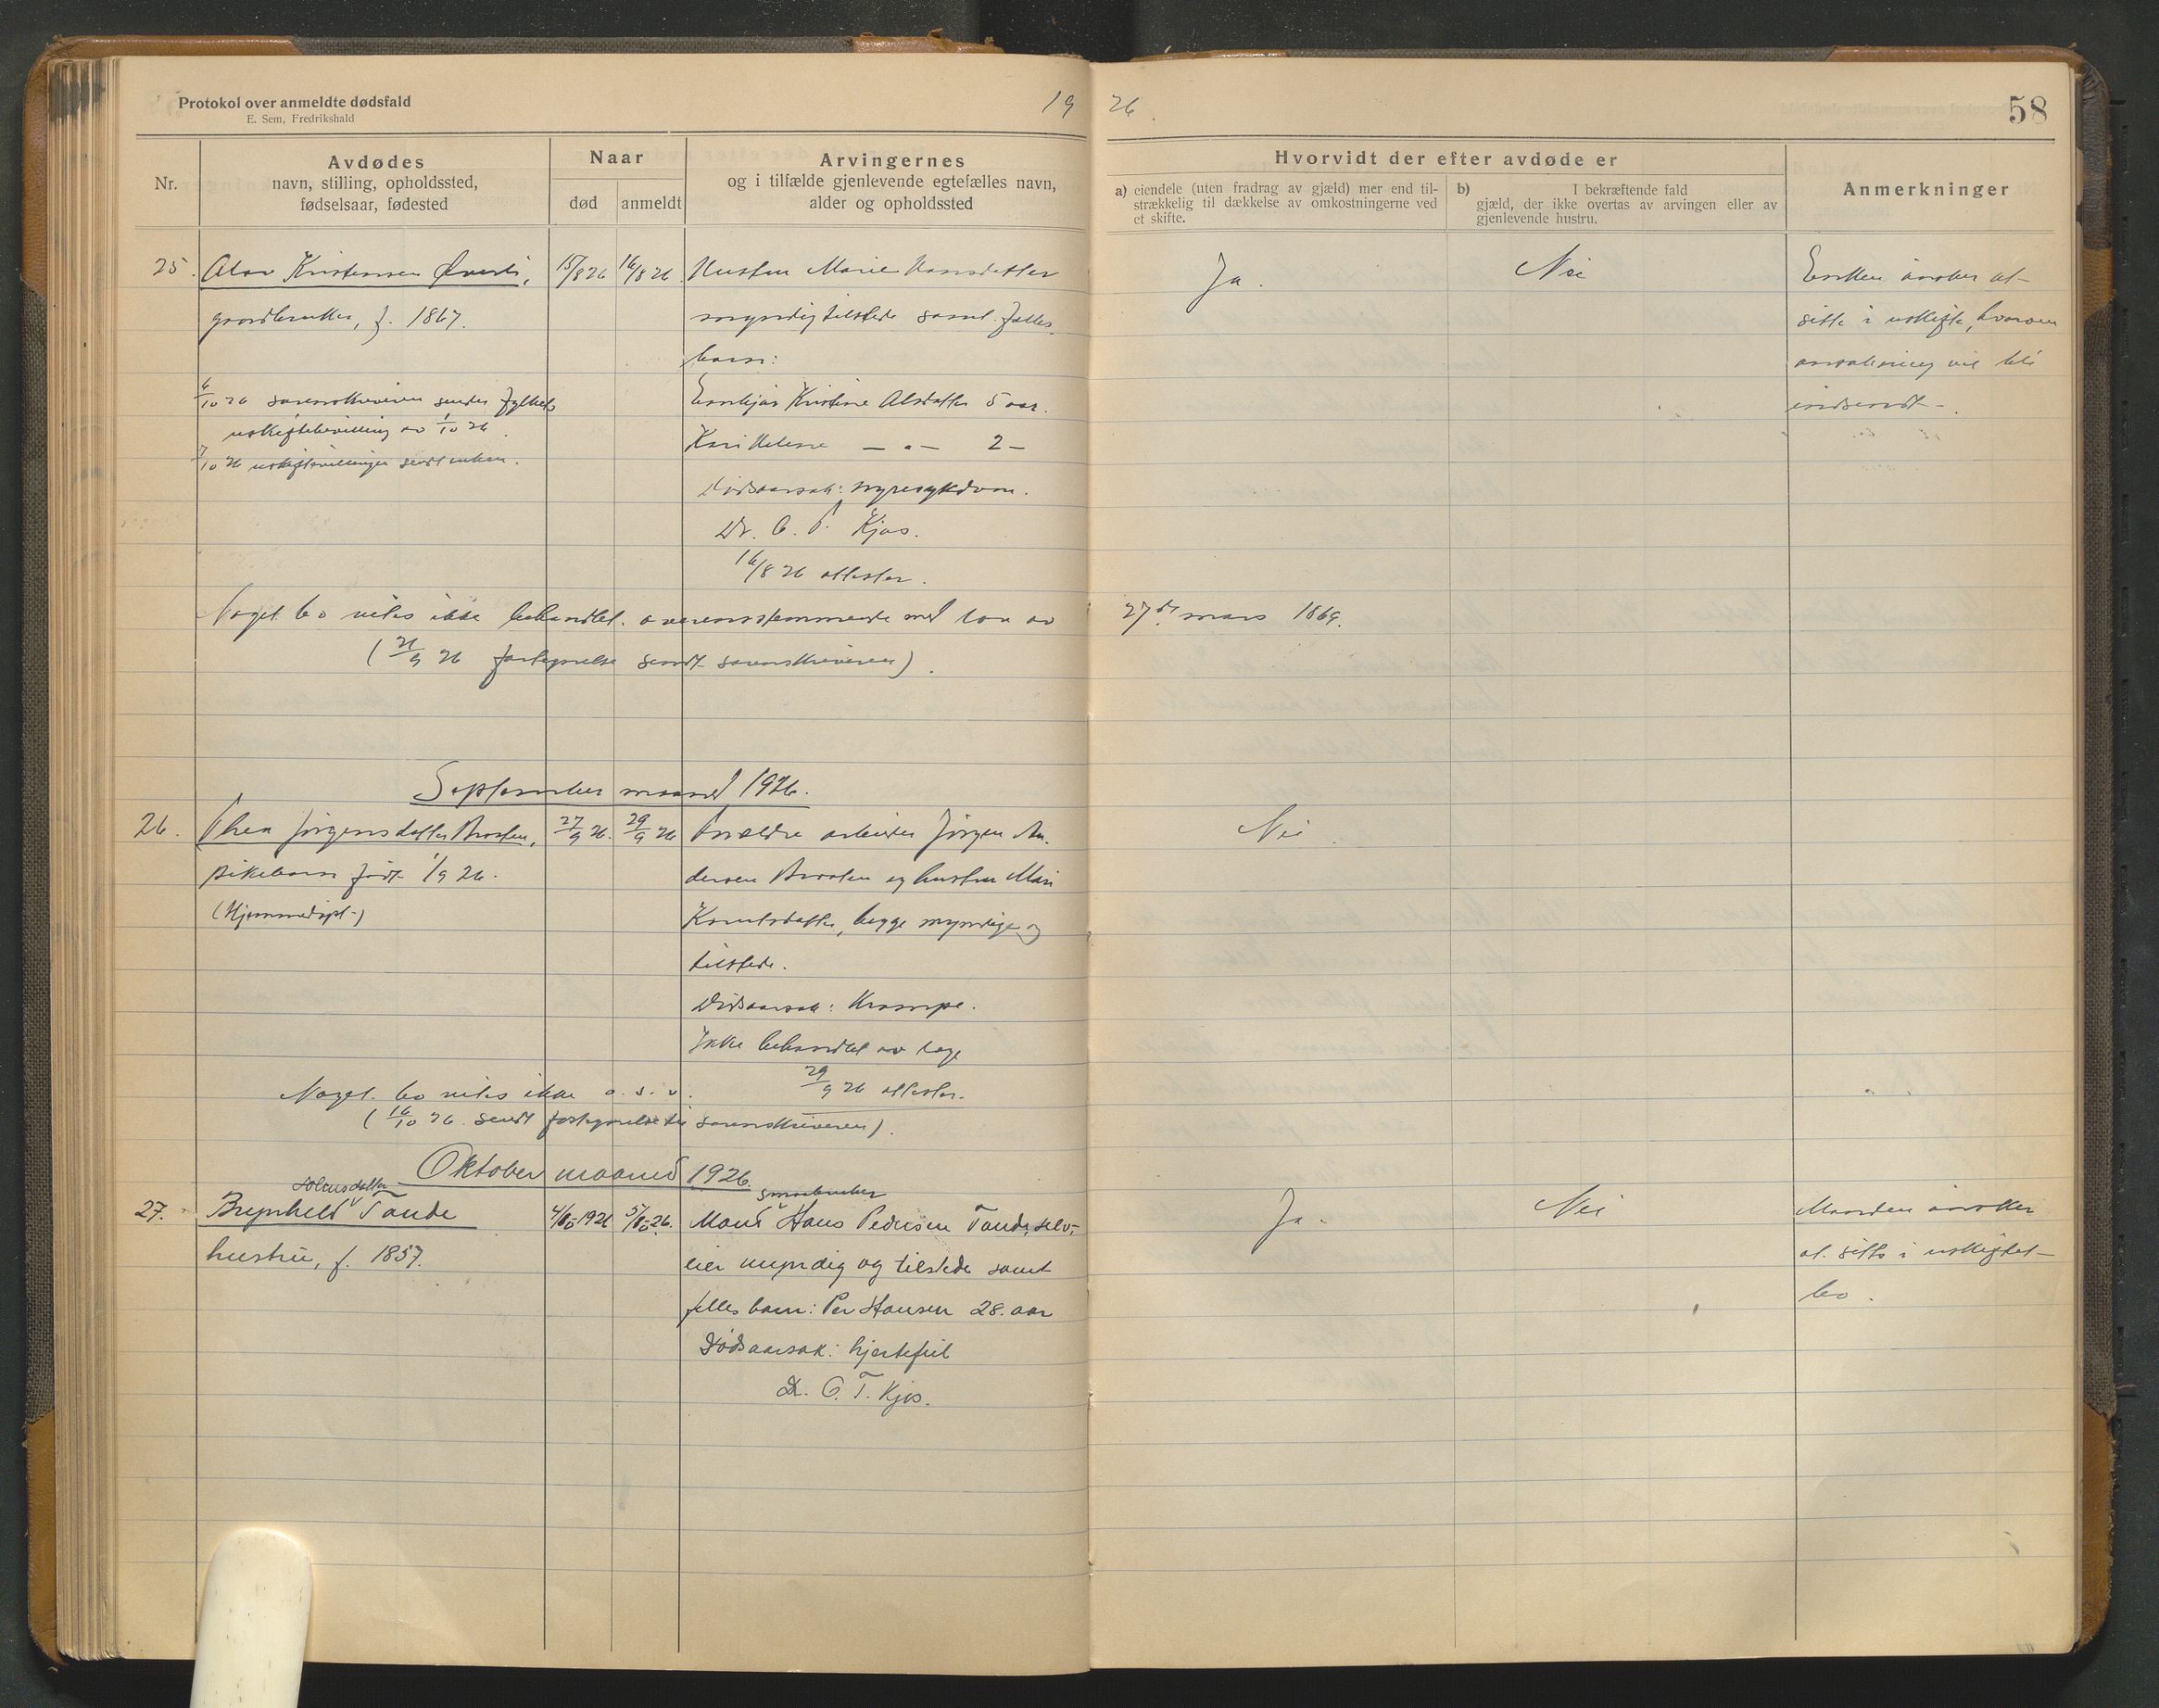 Protokol over anmeldte dødsfald
E. Sem, Fredrikshald
19 26.
58
Nr.
Avdødes
navn, stilling, opholdssted,
fødselsaar, fødested
Naar
død
anmeldt
Arvingernes
og i tilfælde gjenlevende egtefælles navn,
alder og opholdssted
Hvorvidt der efter avdøde er
a) eiendele (uten fradrag av gjæld) mer end til-
strækkelig til dækkelse av omkostningerne ved
et skifte.
b) I bekræftende fald
gjæld, der ikke overtas av arvingen eller av
gjenlevende hustru.
Anmerkninger
25. Kristensen 15/8 26 16/8 26 Hustru Marie Hansdatter
gaardbruker, f. 1867.
myndig tilstede samt fælles
barn:
Kristine 5 aar.
Kari Helene — " — 2 —
Dødsaarsak: nyresykdom.
Dr. C. T. Kjøs.
16/8 26 attester.
Ja.
Nei
Enken ønsker at
sitte i uskifte, hvorom
ansøkning vil bli
indsendt.
6/10 26 sorenskriveren sender fylkets
uskiftebevilling av 1/10 26.
7/10 26 sendt enken.
Noget bo vites ikke behandlet overensstemmende med lov av 27de mars 1869.
(21/9 26 fortegnelse sendt sorenskriveren).
September maaned 1926.
26. Thea Jørgensdatter Braaten, 27/9 26. 29/9 26 Forældre arbeider Jørgen An-
pikebarn født 1/9 26.
dersen Braaten og hustru Mari
(Hjemmedøpt)
Knutsdatter, begge myndige og
tilstede.
Dødsaarsak: Krampe.
Ikke behandlet av læge
29/9 26 attester.
Nei.
Noget bo vites ikke o. s. v.
(16/10 26 sendt fortegnelse til sorenskriveren).
Oktober maaned 1926.
27. Brynhild Tande 4/10-1926 5/10-26. Mand Hans Pedersen Tande, selv-
smaabruker
hustru, f. 1857.
eier myndig og tilstede samt
felles barn: Per Hansen 28. aar
Dødsaarsak: hjertefeil
Dr. C. T. Kjøs.
Ja.
Nei
Manden ønsker
at sitte i uskiftet
bo.